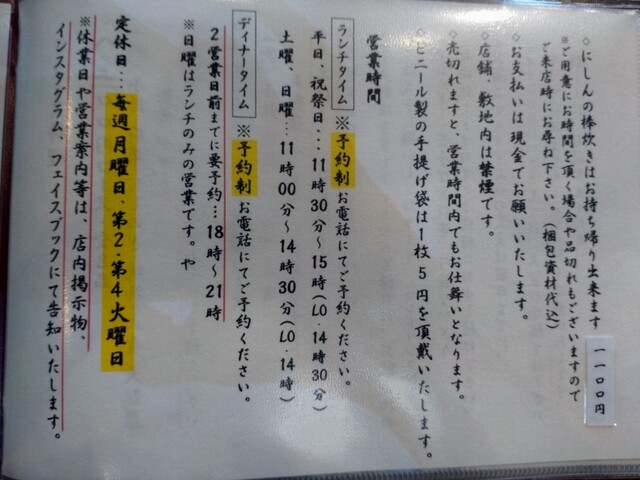 ◇にしんの棒炊きはお持ち帰り出来ます 一一〇〇円
※ご用意にお時間を頂く場合や品切れもございますので
ご来店時にお尋ね下さい。(梱包資材代込)
◇お支払いは現金でお願いいたします。
◇店舗・敷地内は禁煙です。
◇売切れますと、営業時間内でもお仕舞いとなります。
◇ビニール製の手提げ袋は1枚5円を頂戴いたします。
営業時間
ランチタイム ※予約制 お電話にてご予約ください。
平日、祝祭日…11時30分～15時(LO.14時30分)
土曜、日曜…11時00分～14時30分(LO.14時)
ディナータイム ※予約制 お電話にてご予約ください。
2営業日前までに要予約…18時～21時
※日曜はランチのみの営業です。や
定休日…毎週月曜日、第2・第4火曜日
※休業日や営業案内等は、店内掲示物、
インスタグラム、フェイスブックにて告知いたします。